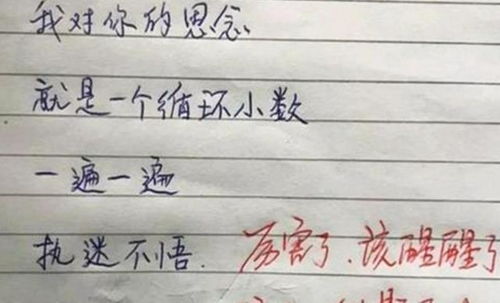 我对你的思念
就是一个循环小数
一遍一遍
执迷不悟. 厉害了.该醒醒了